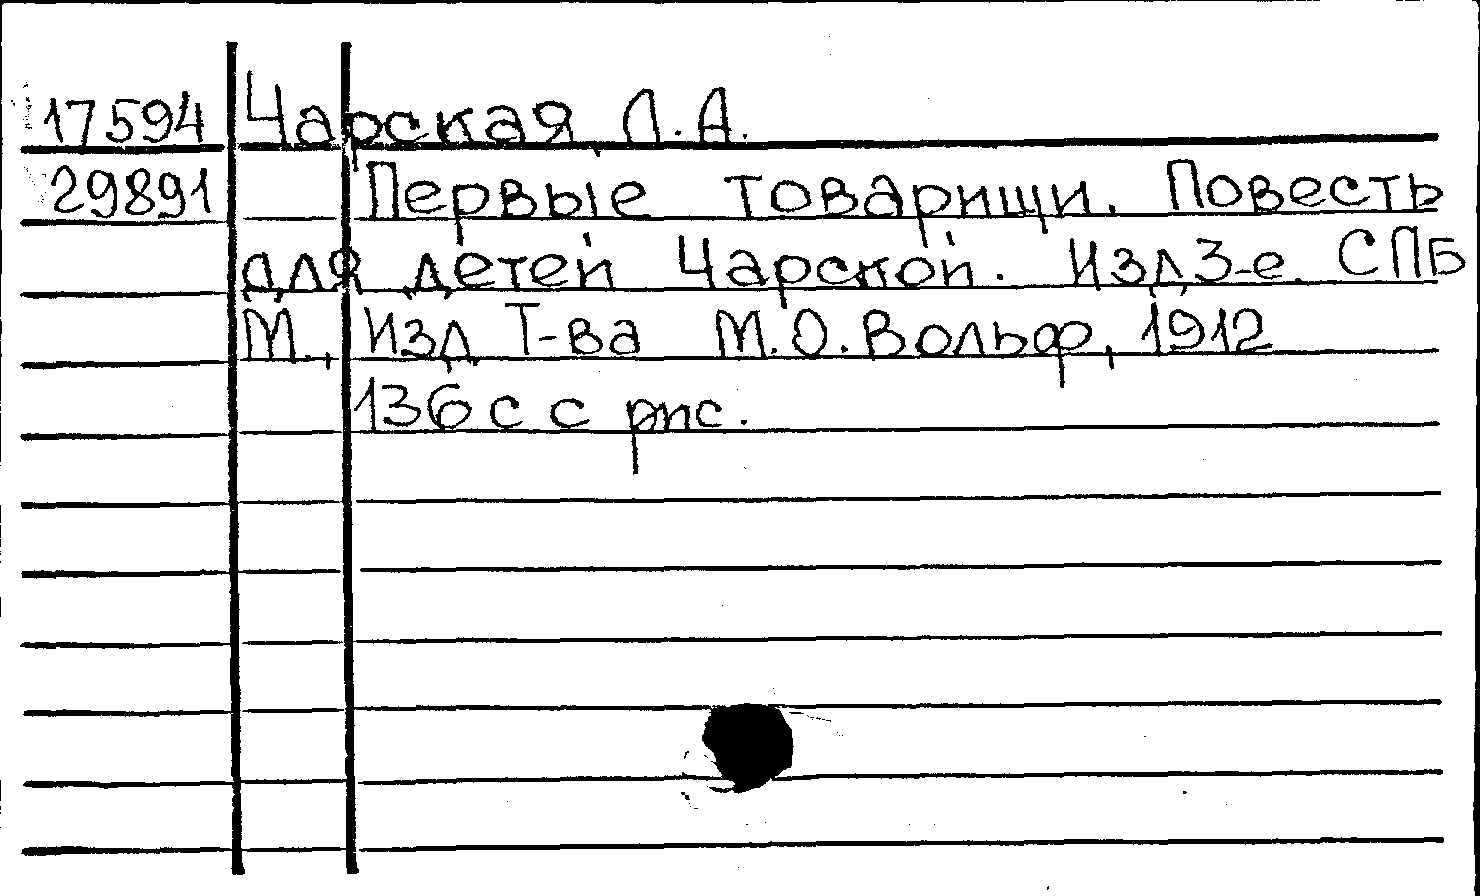 17594 Чарская, Л.А.
29891 Первые товарищи. Повесть
для детей Чарской. Изд 3-е. СПБ
М., Изд. Т-ва М.О.Вольф, 1912
136 с с рис.